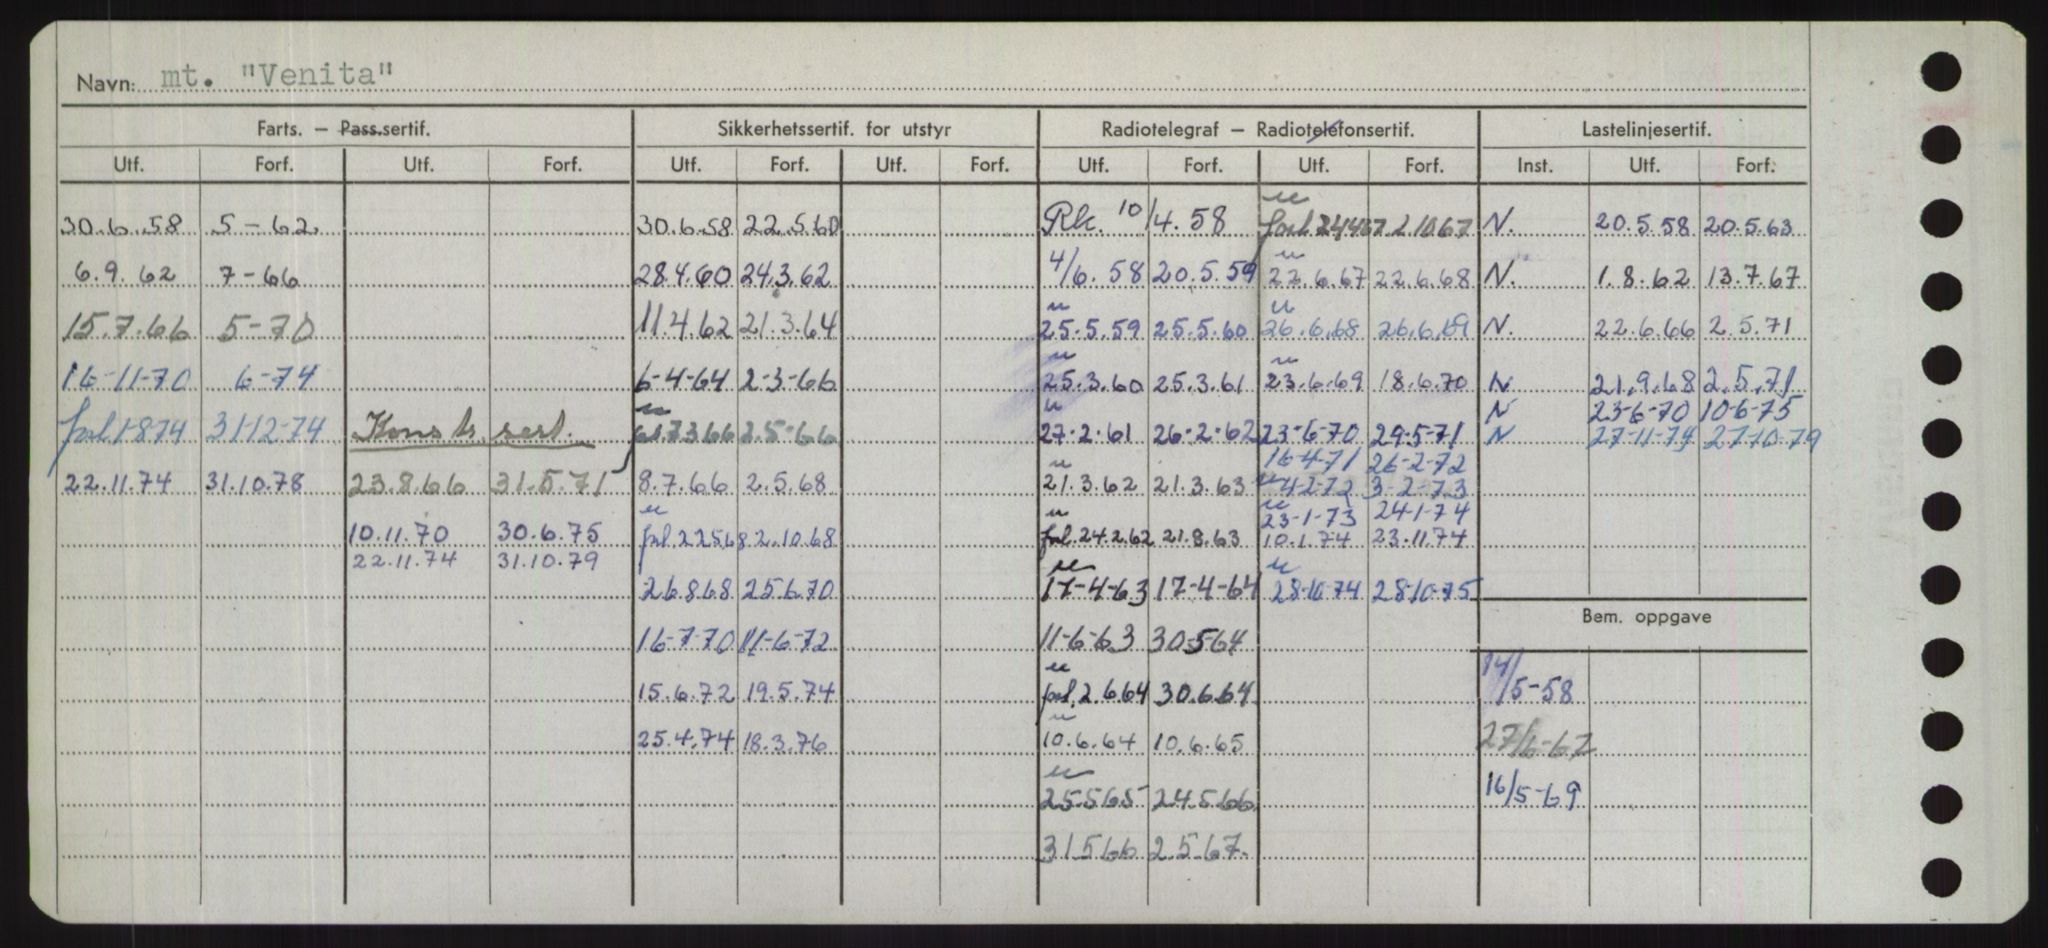 Navn: mt. "Venita"
Farts. – Pass.sertif. Sikkerhetssertif. for utstyr Radiotelegraf – Radiotelefonsertif. Lastelinjesertif.
Utf. Forf. Utf. Forf. Utf. Forf. Utf. Forf. Utf. Forf. Utf. Forf. Inst. Utf. Forf.
30.6.58 5-62 30.6.58 22.5.60 Rk. 10/4.58 2.10.67 N. 20.5.58 20.5.63
6.9.62 7-66 28.4.60 24.3.62 4/6.58 20.5.59 22.6.67 22.6.68 N. 1.8.62 13.7.67
15.7.66 5-70 11.4.62 21.3.64 25.5.59 25.5.60 26.6.68 26.6.69 N. 22.6.66 2.5.71
16-11-70 6-74 6-4-64 2-3-66 25.3.60 25.3.61 23.6.69 18.6.70 N 21.9.68 2.5.71
N 23-6-70 10-6-75
1-8-74 31-12-74 Konstr. sert. 2.5-66 27-2-61 26-2-62 23-6-70 29-5-71 N 27-11-74 27-10-79
16-4-71 26-2-72
22.11.74 31.10.78 23.8.66 31.5.71 8.7.66 2.5.68 21.3.62 21.3.63 4-2-72 3-2-73
23-1-73 24-1-74
10.11.70 30.6.75 2.10.68 24.2.62 21.8.63 10.1.74 23.11.74
22.11.74 31.10.79
26868 25670 17-4-63 17-4-64 28-10-74 28-10-75
Bem. oppgave
16-7-70 11-6-72 11-6-63 30564
15.6.72 19.5.74 2.6.64 30.6.64 14/5-58
25.4.74 18.3.76 10.6.64 10.6.65 27/6-62
25565 24566 16/5-69
31566 2.5.67.